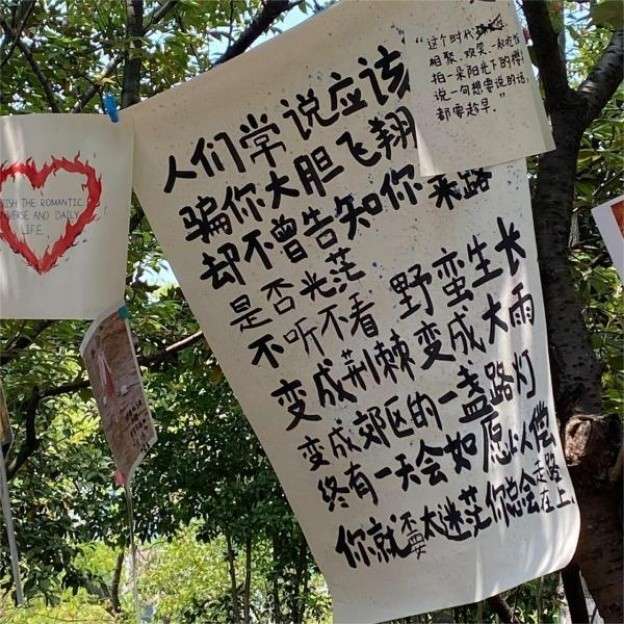 “这个时代
相聚、欢笑、一起吃饭
拍一朵阳光下的樱
说一句想要说的话，
都要趁早。”
人们常说应该
骗你大胆飞翔
却不曾告知你 来路
是否光茫
不听不看 野蛮生长
变成荆棘变成大雨
变成郊区的一盏路灯
终有一天会如愿以偿
你就不要太迷茫你总会走在路上
ISH THE ROMANTIC
VERSE AND DAILY
LIFE